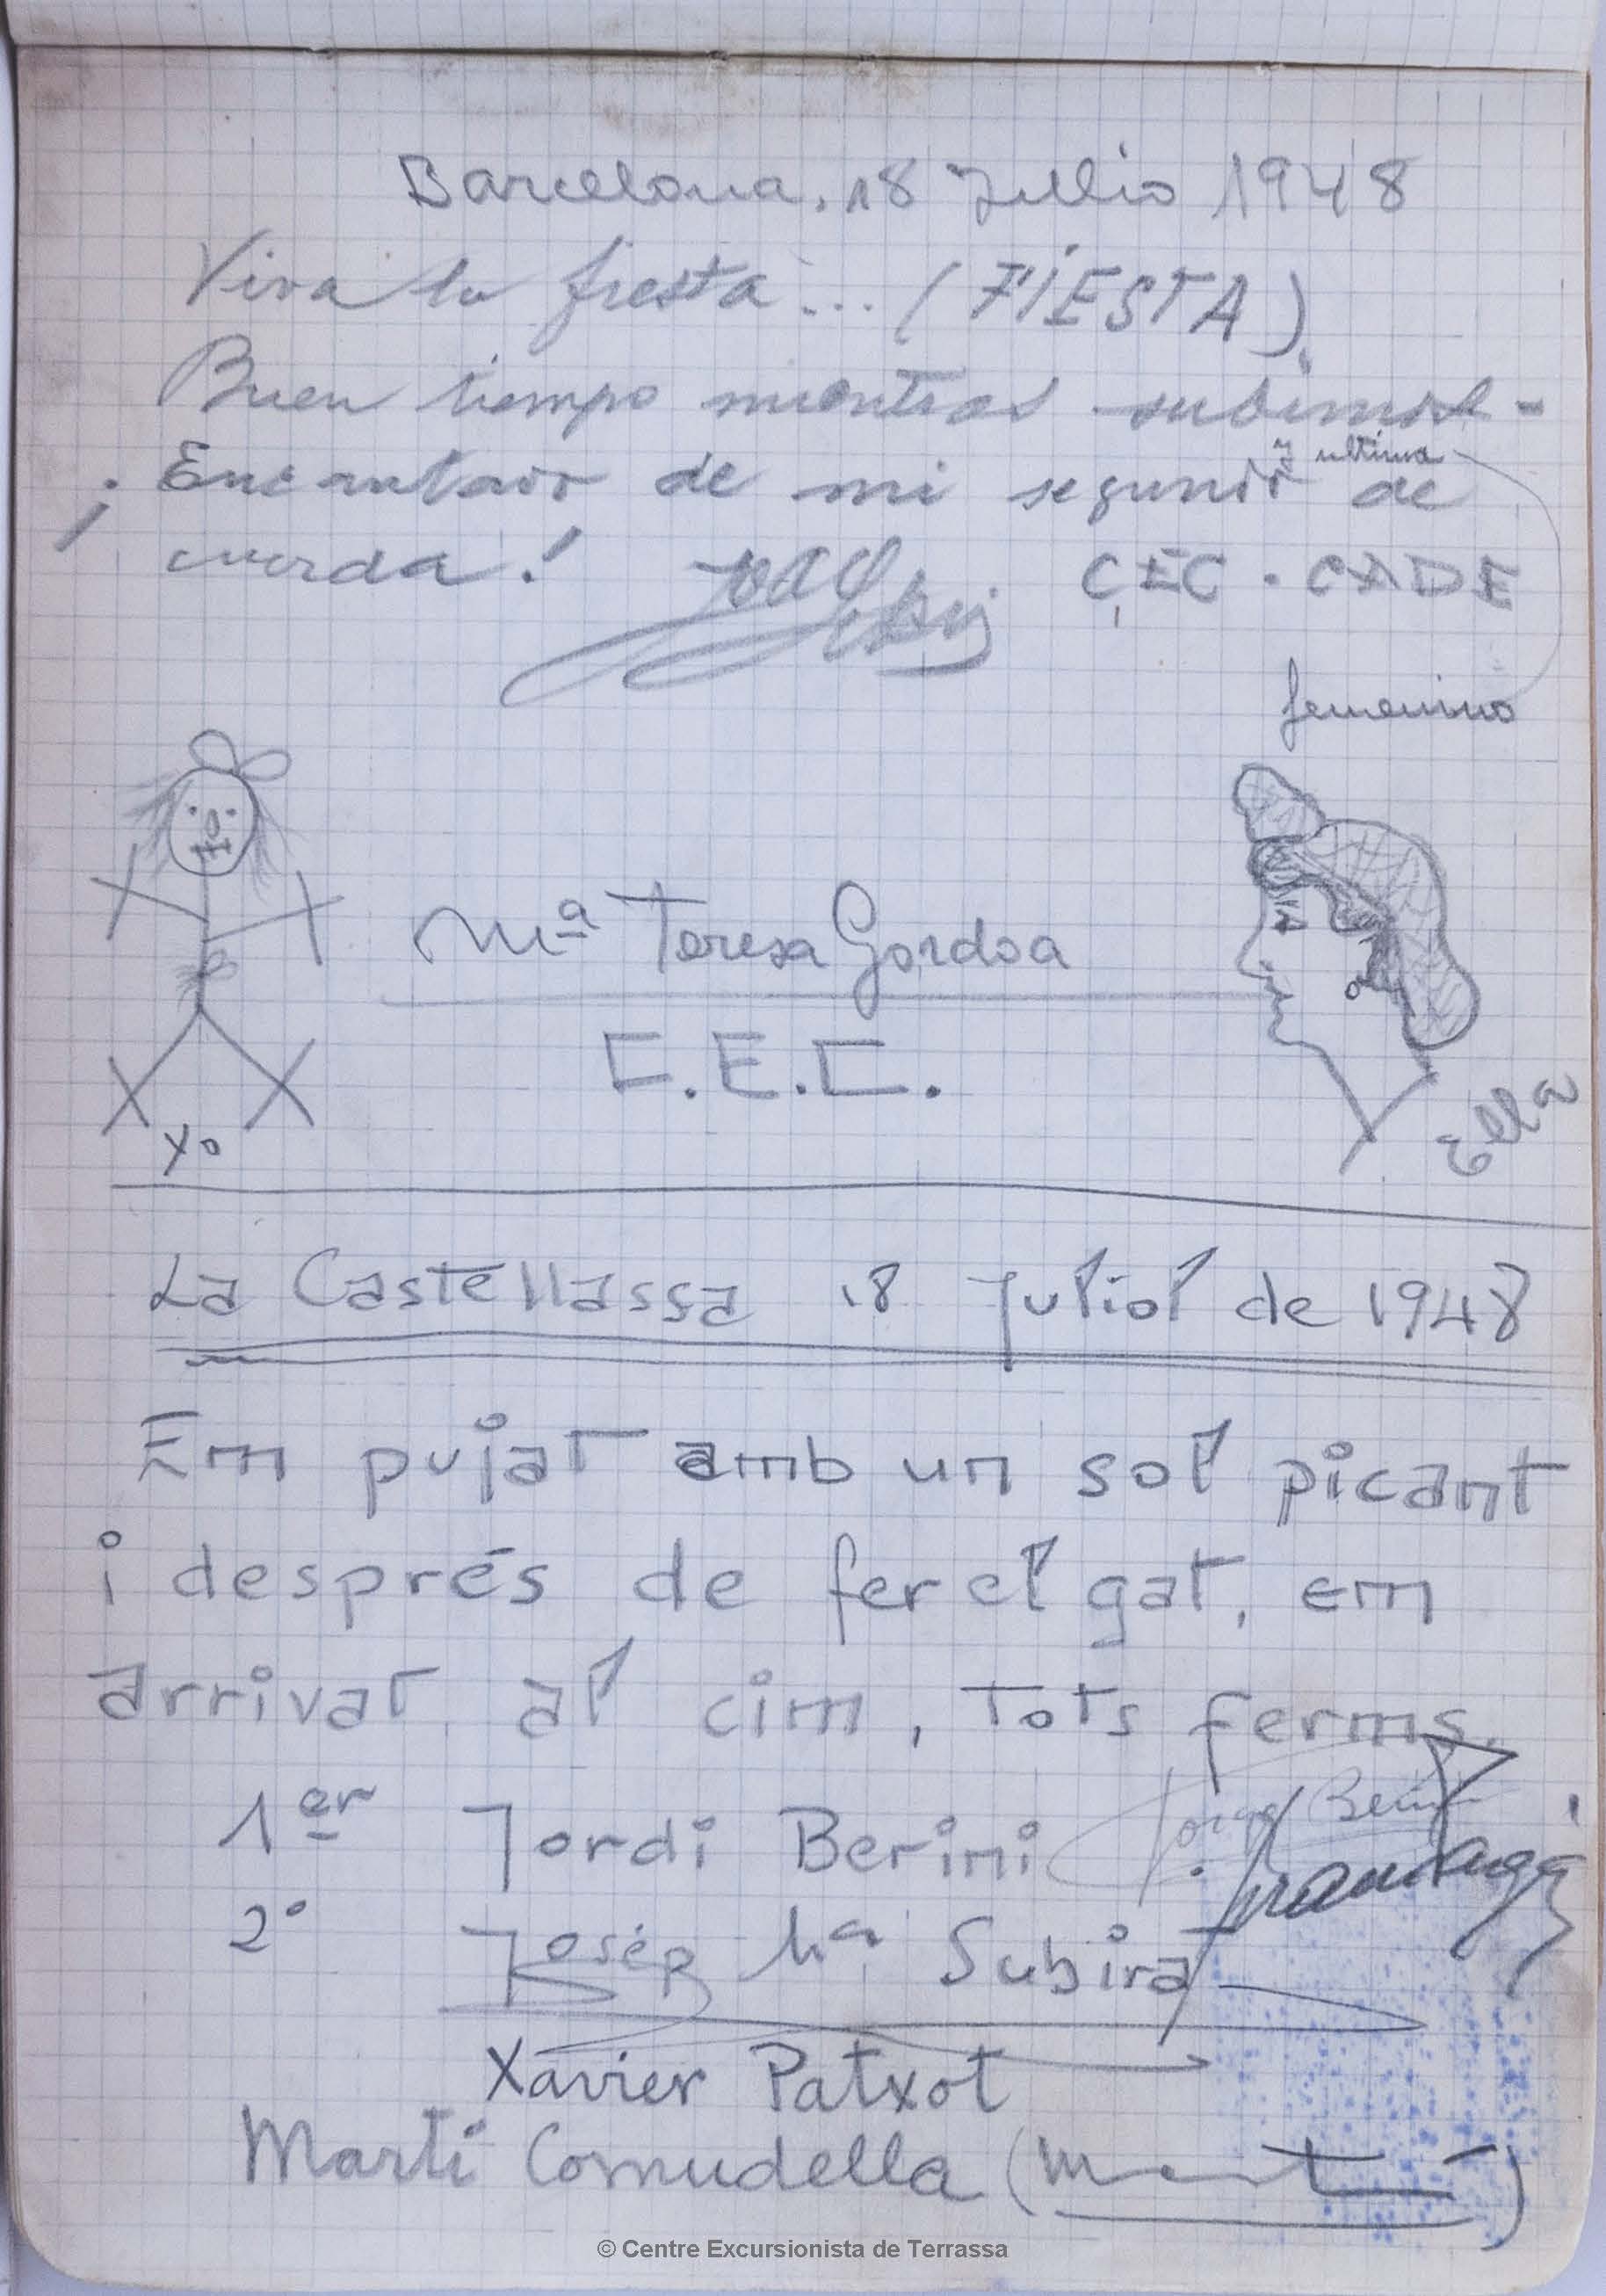 Barcelona, 18 Jullio 1948
Viva la fiesta... (FIESTA)
Buen tiempo mientras subimos -
y ultima
¡Encantado de mi segundo de
cuerda!
CEC - CADE
femenino
Mª Teresa Gordoa
C.E.C.
Yo
Ella
La Castellassa 18 Juliol de 1948
Em pujat amb un sol picant
i després de fer el gat, em
arrivat al cim, tots ferms.
1er Jordi Berini
2º Josép Mª Subirà
Xavier Patxot
Martí Cornudella (Martí)
© Centre Excursionista de Terrassa